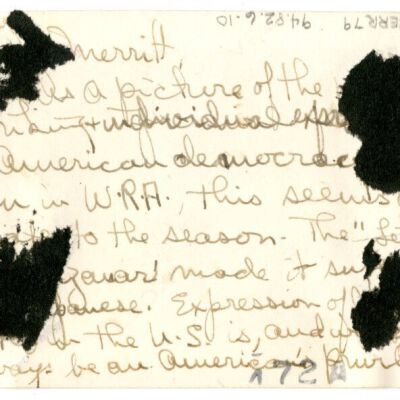 94.82.6.10
Merritt,
As a picture of the
+ individual expr
American democrac
in W.R.A., this seems
to the season. The "Le
made it su
anese. Expression of
in the U.S. is, and
ways be an American's
A 72